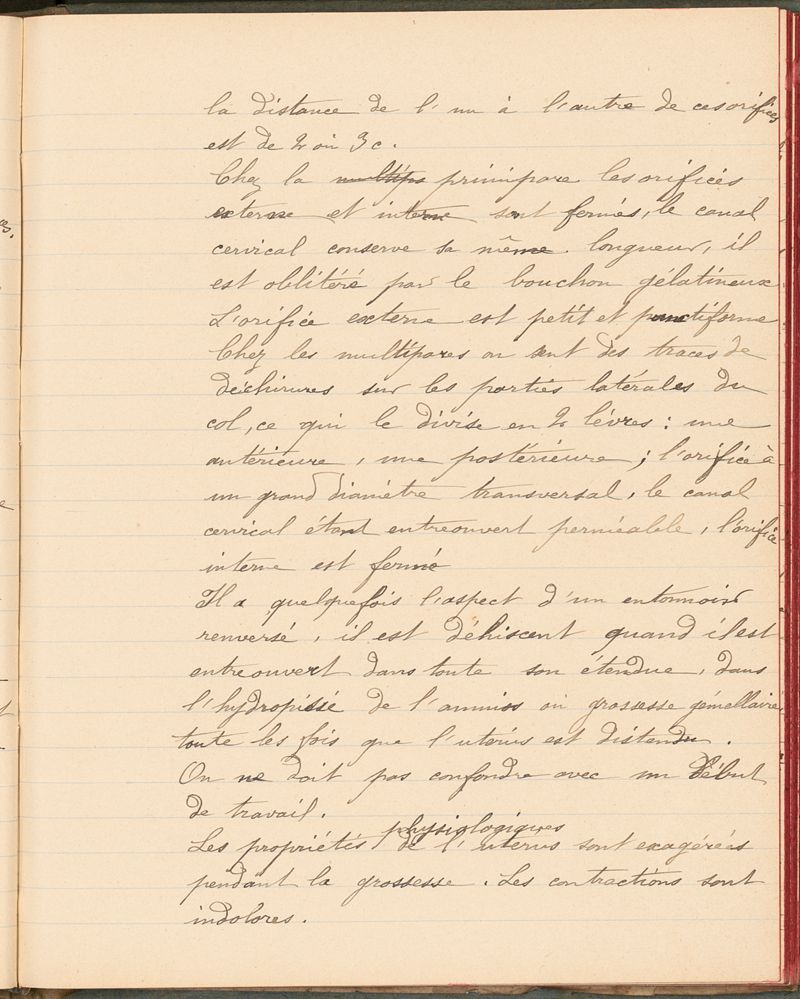 la distance de l'un à l'autre de ces orifices
est de 2 ou 3 c.
Chez la multips primipare les orifices
externe et interne sont fermés, le canal
cervical conserve sa même longueur, il
est oblitéré par le bouchon gélatineux
L'orifice externe est petit et punctiforme
Chez les multipares on sent des traces de
déchirures sur les parties latérales du
col, ce qui le divise en 2 lèvres : une
antérieure, une postérieure ; l'orifice à
un grand diamètre transversal, le canal
cervical étant entreouvert perméable, l'orifice
interne est fermé
Il a quelquefois l'aspect d'un entonnoir
renversé, il est déhiscent quand il est
entreouvert dans toute son étendue, dans
l'hydropisie de l'amnios ou grossesse gémellaire
toute les fois que l'utérus est distendu.
On ne doit pas confondre avec un début
de travail.
physiologiques
Les propriétés de l'utérus sont exagérées
pendant la grossesse. Les contractions sont
indolores.